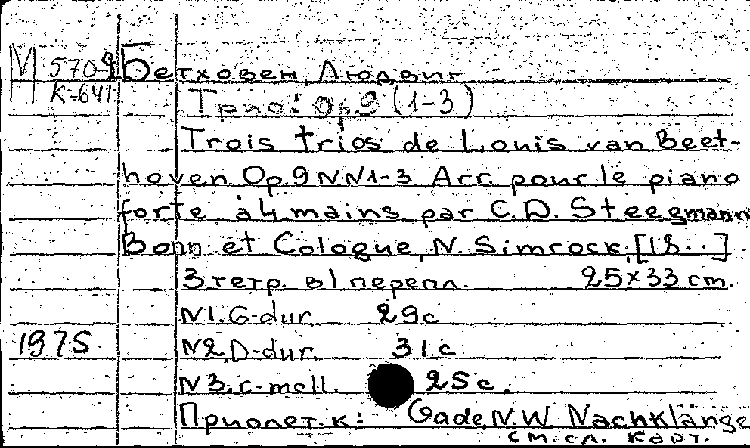 М 5709 Бетховен, Людвиг
К-641 Трио: Op.9 (1-3)
Trois trios de Louis van Beet-
hoven Op.9 NN1-3 Arr. pour le piano
forte à 4 mains par C.D. Steegmann
Bonn et Cologne, N. Simrock, [18..]
3 тетр. в 1 перепл. 25x33 cm.
N1. G-dur. 29 с
1975 N2. D-dur. 31 с.
N3. c-moll. 25 с.
Приплет. к: Gade, N.W. Nachklänge
см. сл. карт.